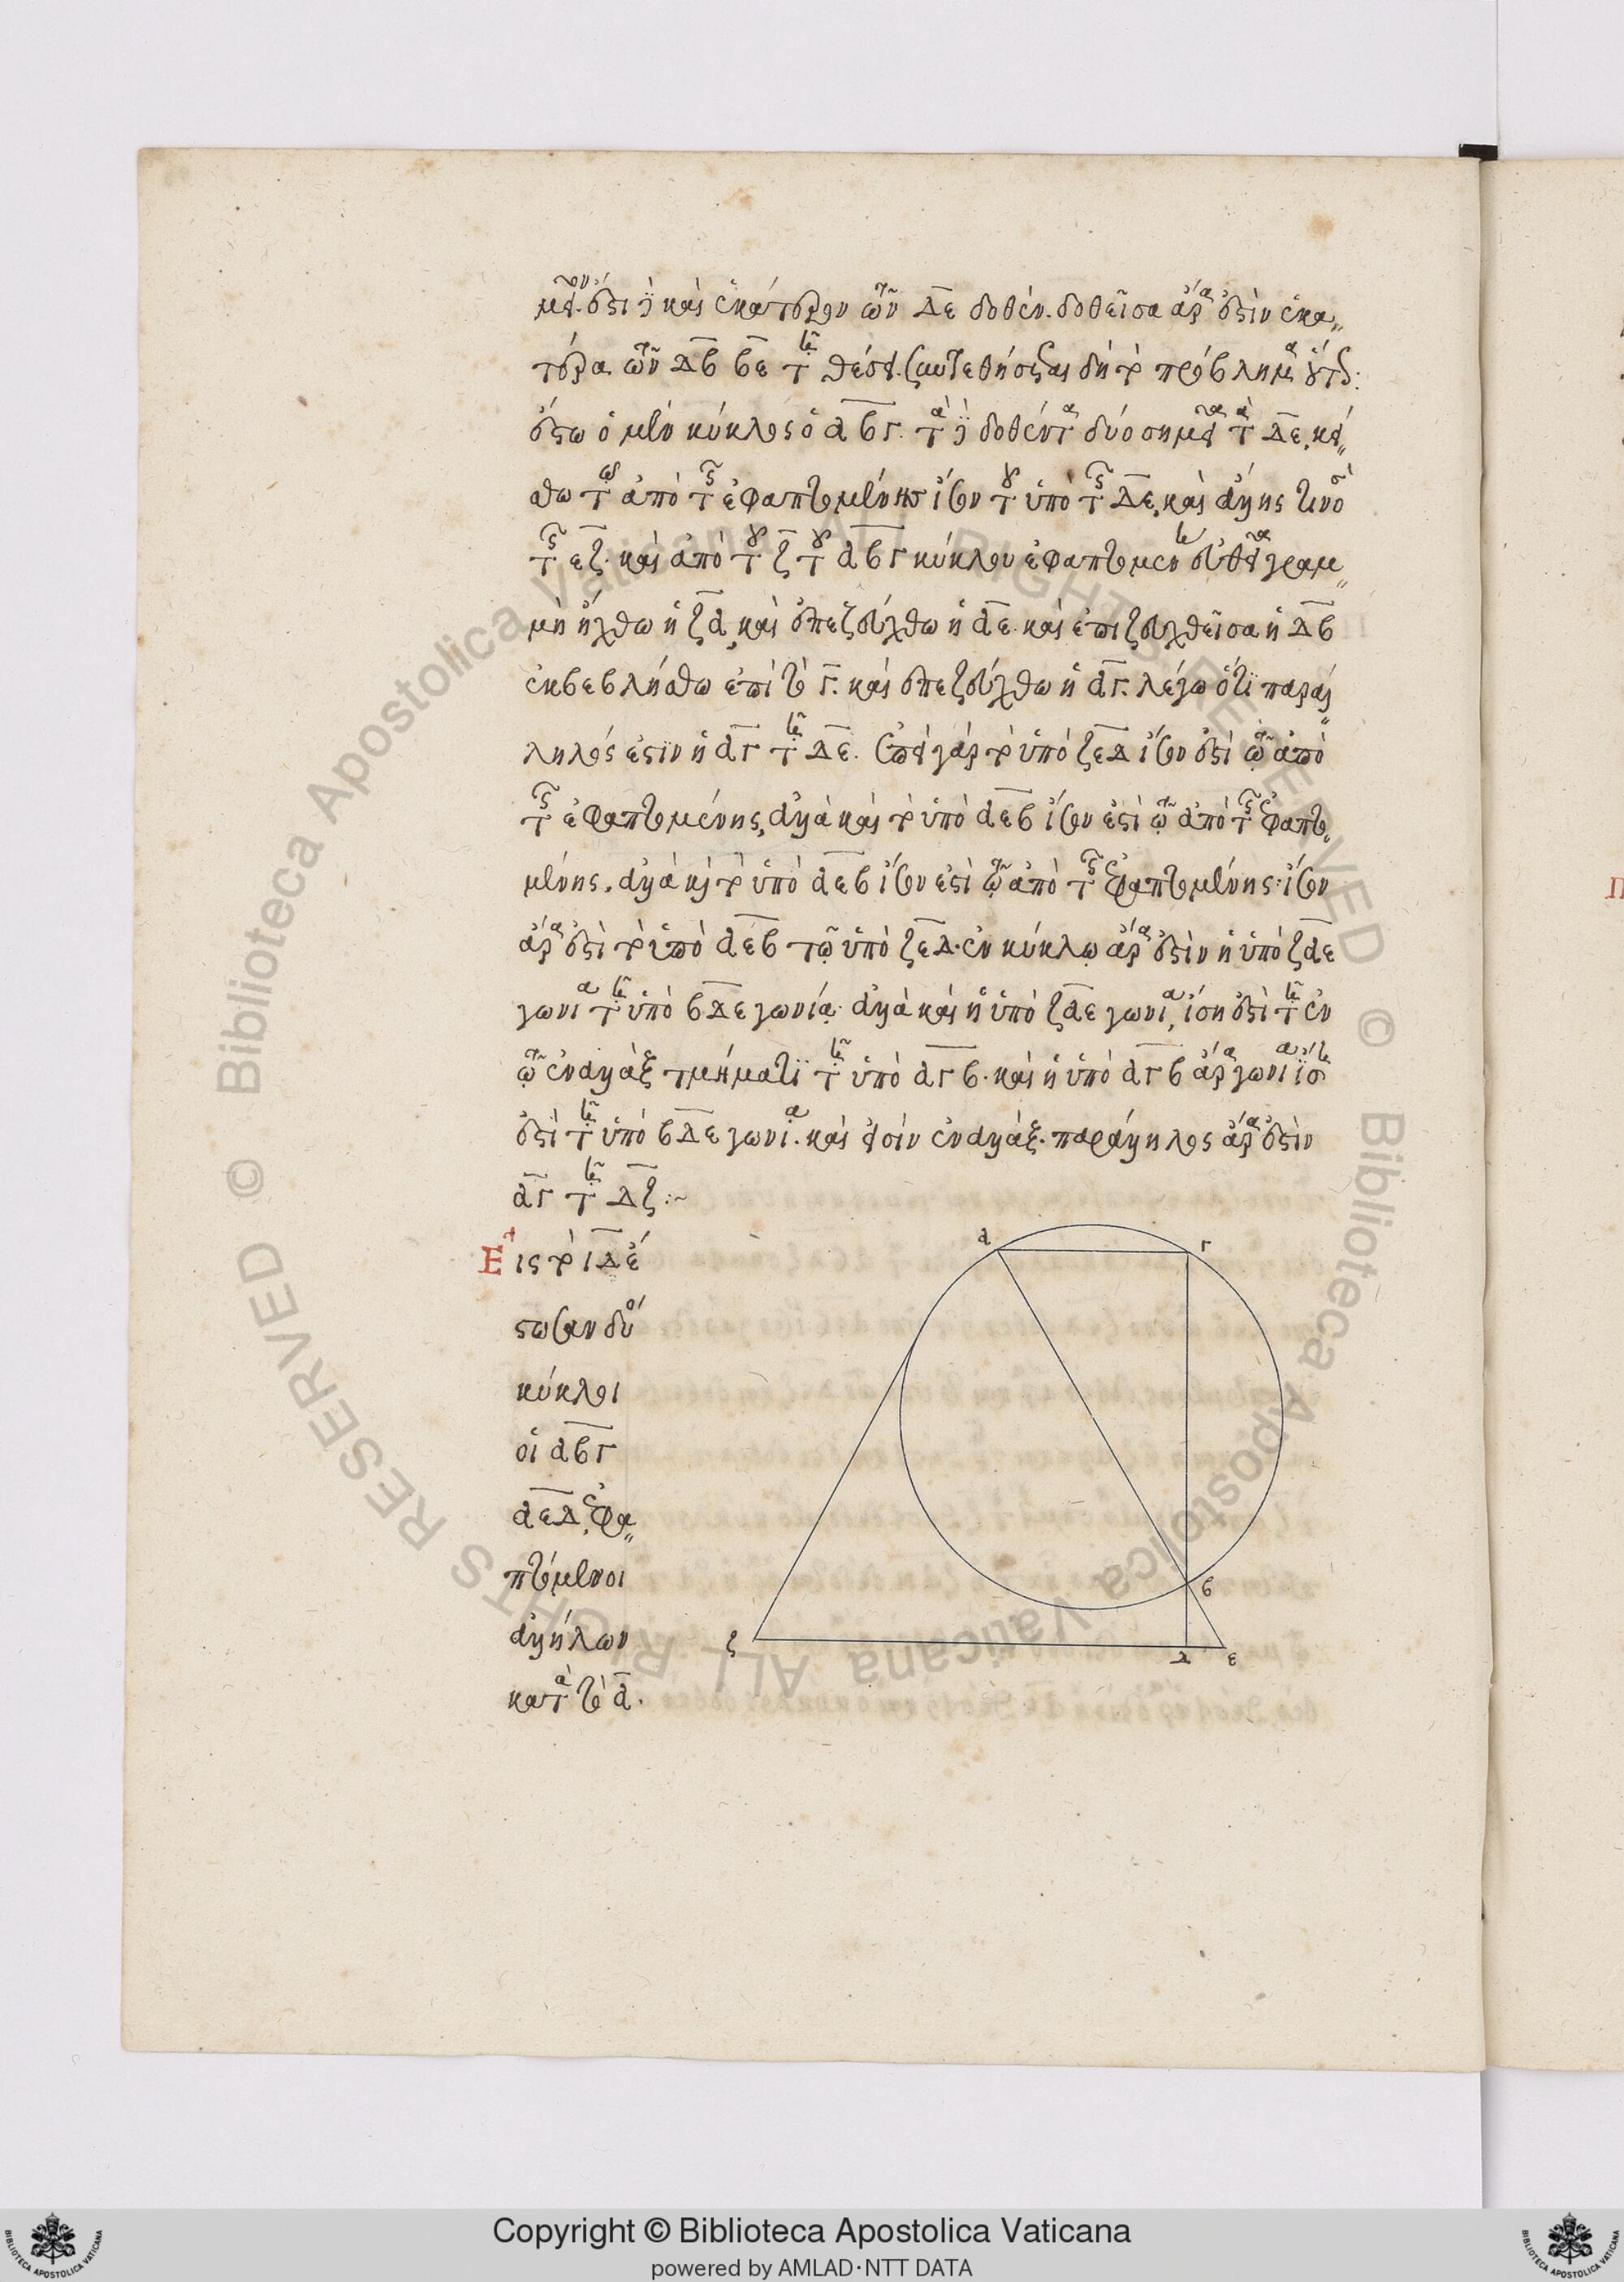 μεῖον. ἔστι δὲ καὶ ἑκάτερον τῶν ΔΕ δοθέν. δοθεῖσα ἄρα ἐστὶν ἑκα
τέρα τῶν ΔΒ ΒΕ τῇ θέσει. συντεθήσεται δὴ τὸ πρόβλημα οὕτως:
ἔστω ὁ μὲν κύκλος ὁ ΑΒΓ. τὰ δὲ δοθέντα δύο σημεῖα τὰ ΔΕ, κεί
σθω τῷ ἀπὸ τῆς ἐφαπτομένης ἴσον τοῦ ὑπὸ τῆς ΔΕ, καὶ ἄλλης τινὸς
τῆς ΕΖ. καὶ ἀπὸ τοῦ Ζ τοῦ ΑΒΓ κύκλου ἐφαπτομένη εὐθεῖα γραμ
μὴ ἤχθω ἡ ΖΑ, καὶ ἐπεζεύχθω ἡ ΑΕ. καὶ ἐπιζευχθεῖσα ἡ ΔΒ
ἐκβεβλήσθω ἐπὶ τὸ Γ. καὶ ἐπεζεύχθω ἡ ΑΓ. λέγω ὅτι παράλ
ληλός ἐστιν ἡ ΑΓ τῇ ΔΕ. ἐπεὶ γὰρ τὸ ὑπὸ ΖΕΔ ἴσον ἐστὶ τῷ ἀπὸ
τῆς ἐφαπτομένης, ἀλλὰ καὶ τὸ ὑπὸ ΑΕΒ ἴσον ἐστὶ τῷ ἀπὸ τῆς ἐφαπτο
μένης. ἀλλὰ καὶ τὸ ὑπὸ ΑΕΒ ἴσον ἐστὶ τῷ ἀπὸ τῆς ἐφαπτομένης: ἴσον
ἄρα ἐστὶ τὸ ὑπὸ ΑΕΒ τῷ ὑπὸ ΖΕΔ. ἐν κύκλῳ ἄρα ἐστὶν ἡ ὑπὸ ΖΑΕ
γωνία τῇ ὑπὸ ΒΔΕ γωνίᾳ. ἀλλὰ καὶ ἡ ὑπὸ ΖΑΕ γωνία, ἴση ἐστὶ τῇ ἐν
τῷ ἐναλλὰξ τμήματι τῇ ὑπὸ ΑΓΒ. καὶ ἡ ὑπὸ ΑΓΒ ἄρα γωνία ἴση
ἐστὶ τῇ ὑπὸ ΒΔΕ γωνίᾳ. καὶ εἰσὶν ἐναλλάξ. παράλληλος ἄρα ἐστὶν
ΑΓ τῇ ΔΖ:~
Εἰς τὸ ΙΔ ἔ
στωσαν δύο
κύκλοι
οἱ ΑΒΓ
ΑΕΔ, ἐφα
πτόμενοι
ἀλλήλων
κατὰ τὸ Α.
Α Γ
Β
Ζ Δ Ε
Copyright © Biblioteca Apostolica Vaticana
powered by AMLAD·NTT DATA